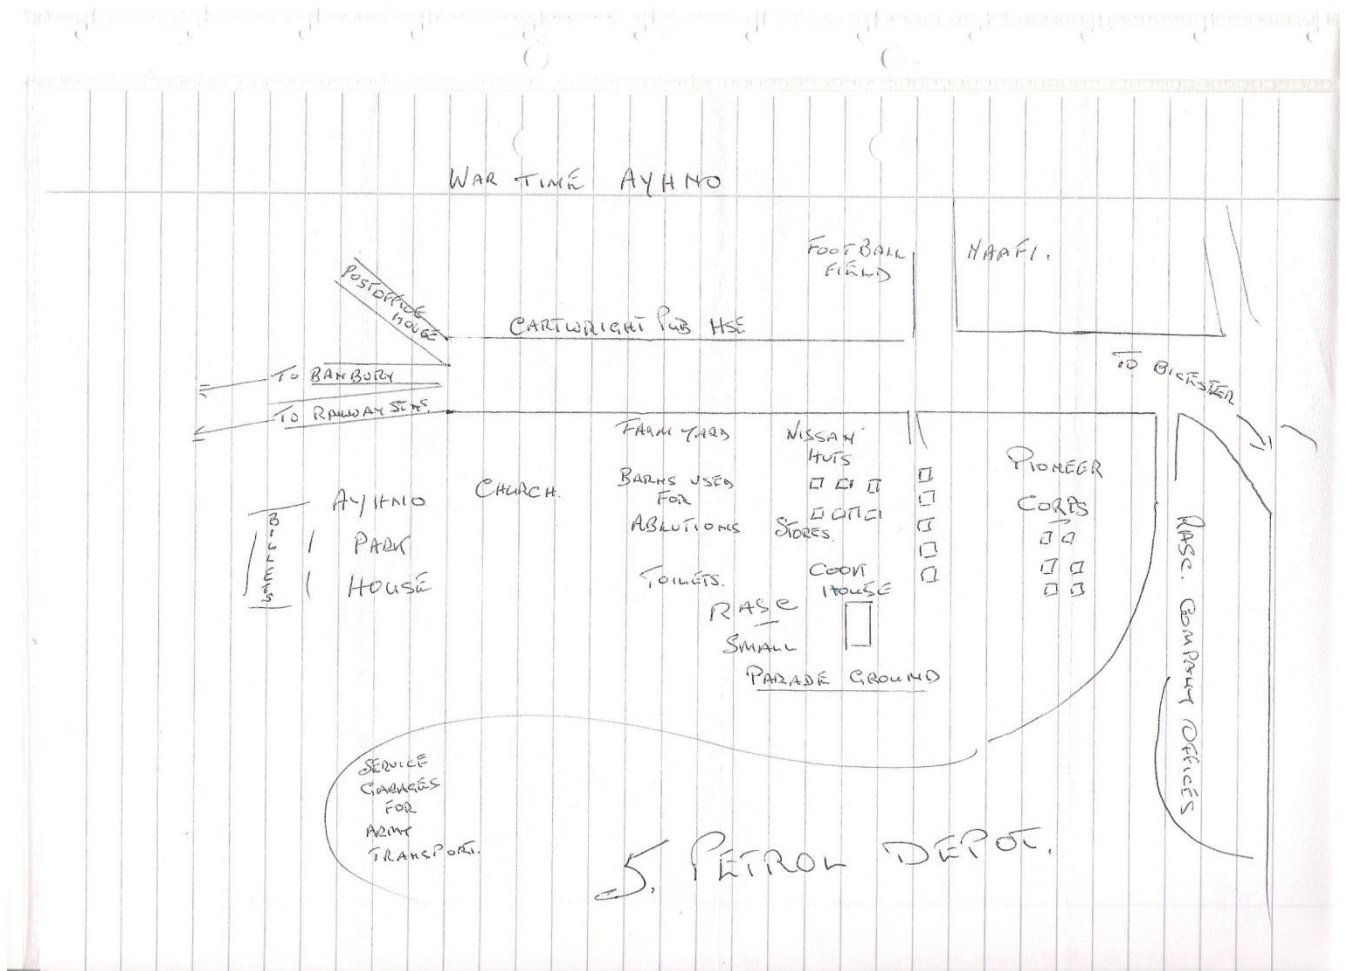 WAR TIME AYHNO
FOOTBALL
FIELD
NAAFI.
POSTOFFICE
HOUSE
CARTWRIGHT PUB HSE
TO BANBURY
TO RAILWAY STNS.
TO BICESTER
FARM YARD
NISSAN
HUTS
BARNS USED
FOR
ABLUTIONS
STORES.
PIONEER
CORPS
CHURCH.
AYHNO
PARK
HOUSE
BILLETS
TOILETS.
COOK
HOUSE
RASC
SMALL
PARADE GROUND
RASC. COMPANY OFFICES
SERVICE
GARAGES
FOR
ARMY
TRANSPORT.
5. PETROL DEPOT.